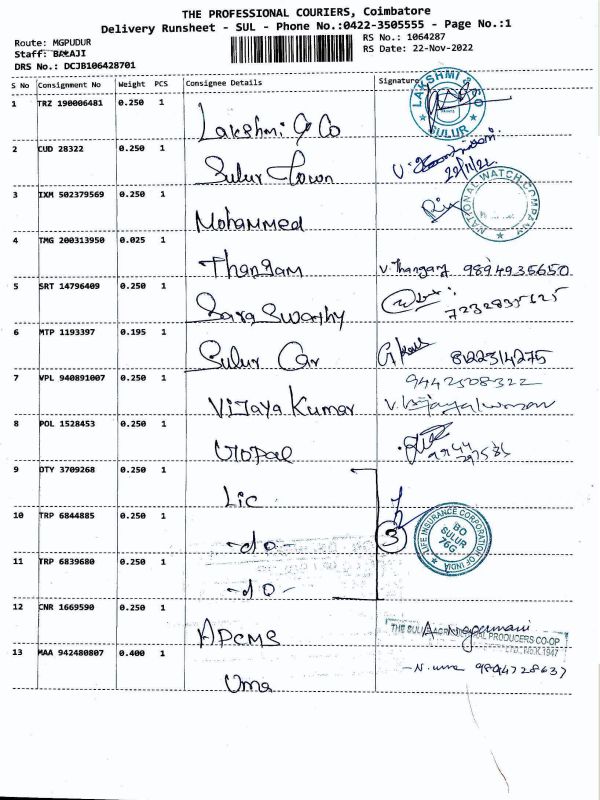 THE PROFESSIONAL COURIERS, Coimbatore
Delivery Runsheet - SUL - Phone No.:0422-3505555 - Page No.:1
Route: MGPUDUR
RS No.: 1064287
Staff: BALAJI
RS Date: 22-Nov-2022
DRS No.: DCJB106428701
S No Consignment No Weight PCS Consignee Details Signature
1 TRZ 190006481 0.250 1
LAKSHMI & CO
SULUR
Lakshmi & Co
2 CUD 28322 0.250 1
Sulur Town
22/11/22
3 IXM 502379569 0.250 1
NATIONAL WATCH COMPANY
Mohammed
4 TMG 200313950 0.025 1
Thangam V. Thangaraj 9894935650
5 SRT 14796409 0.250 1
Saraswathy
6 MTP 1193397 0.195 1
Sulur Car 8122314275
7 VPL 940891007 0.250 1
9442508322
Vijaya Kumar V. Vijayakumar
8 POL 1528453 0.250 1
Gopal
9 DTY 3709268 0.250 1
Lic
10 TRP 6844885 0.250 1
LIFE INSURANCE CORPORATION OF INDIA
BO
SULUR
76G
3
-do-
11 TRP 6839680 0.250 1
-do-
12 CNR 1669590 0.250 1
APCMS
13 MAA 942480807 0.400 1
Uma N. Uma 9894728637